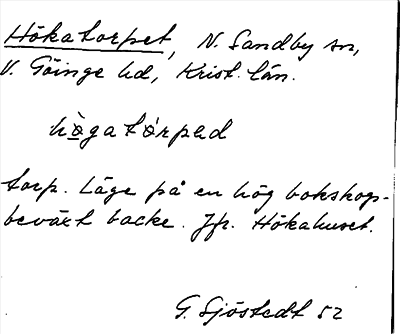 Hökatorpet, N. Sandby sn,
V. Göinge hd, Krist. län.
hògatórped
torp. Läge på en hög bokskogs-
beväxt backe. Jfr. Hökahuset.
G. Sjöstedt 52